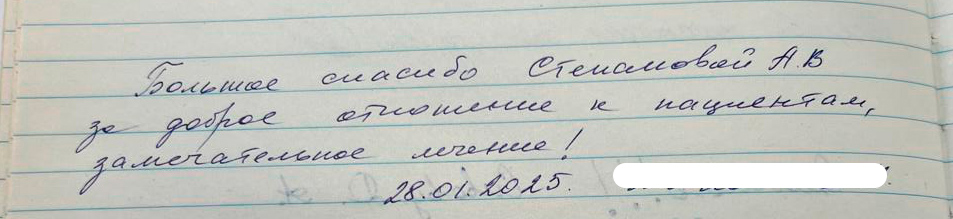 Большое спасибо Степановой А.В
за доброе отношение к пациентам,
замечательное лечение!
28.01.2025.